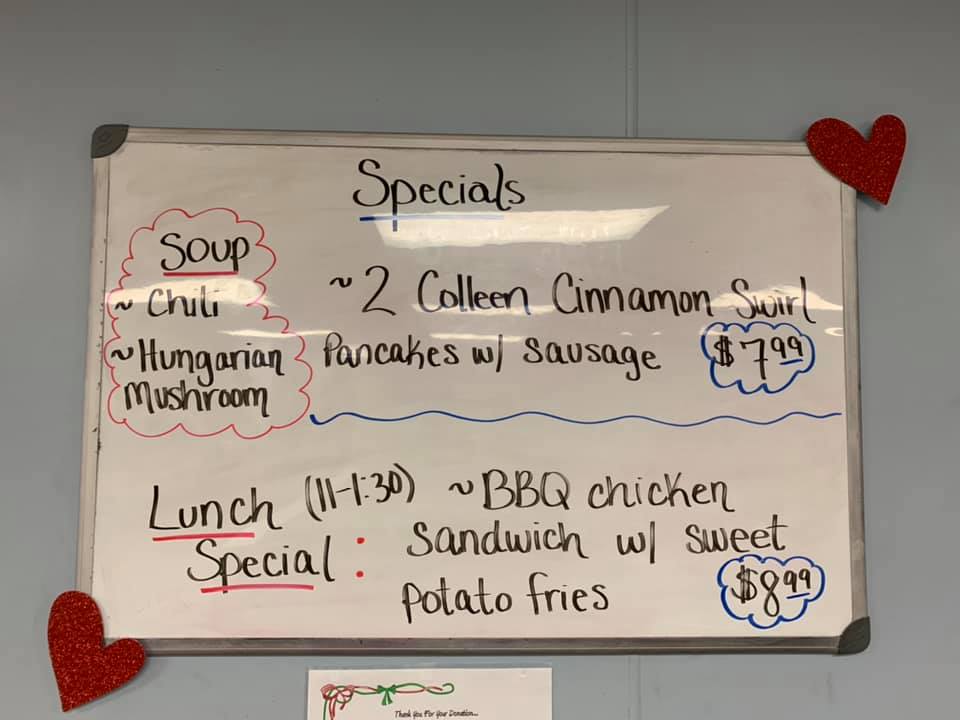 Specials
Soup
~ Chili
~ Hungarian
Mushroom
~ 2 Colleen Cinnamon Swirl
Pancakes w/ sausage $7.99
Lunch (11-1:30) ~ BBQ chicken
Special: Sandwich w/ sweet
potato fries $8.99
Thank You For Your Donation...